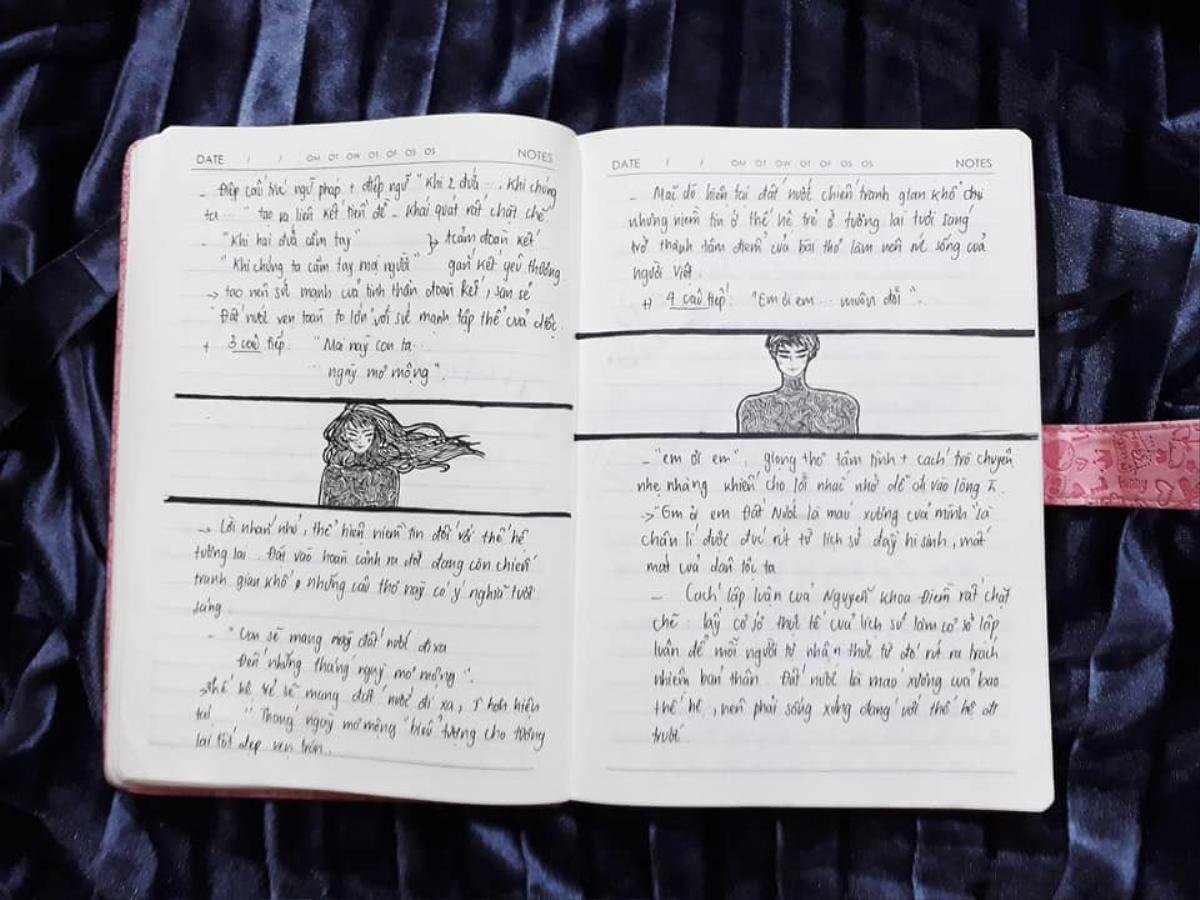 DATE / / OM OT OW OT OF OS OS NOTES
- Điệp cấu trúc ngữ pháp + điệp ngữ "Khi 2 đứa ... Khi chúng
ta ..." tạo ra liên kết tiền đề - Khái quát rất chặt chẽ
- "Khi hai đứa cầm tay" } → cảm đoàn kết
"Khi chúng ta cầm tay mọi người" gắn kết yêu thương
→ tạo nên sức mạnh của tinh thần đoàn kết, san sẻ
"Đất nước vẹn toàn to lớn" với sức mạnh tập thể của dtộc.
+ 3 câu tiếp: "Mai này con ta...
... ngày mơ mộng".
→ Lời nhắn nhủ, thể hiện niềm tin đối với thế hệ
tương lai. Đặt vào hoàn cảnh ra đời đang còn chiến
tranh gian khổ, những câu thơ này có ý nghĩa tươi
sáng.
- "Con sẽ mang đất nước đi xa
Đến những tháng ngày mơ mộng".
→ thế hệ trẻ sẽ mang đất nước đi xa, hơn hiện
tại. "Tháng ngày mơ mộng" biểu tượng cho tương
lai tốt đẹp vẹn tròn.
DATE / / OM OT OW OT OF OS OS NOTES
- Mặc dù hiện tại đất nước chiến tranh gian khổ
nhưng niềm tin ở thế hệ trẻ ở tương lai tươi sáng
trở thành tâm điểm của bài thơ làm nên sức sống của
người Việt.
++ 4 câu tiếp: "Em ơi em ... muôn đời".
- "em ơi em", giọng thơ tâm tình + cách trò chuyện
nhẹ nhàng khiến cho lời nhắc nhở dễ đi vào lòng
→ "Em ơi em Đất Nước là máu xương của mình" là
chân lí được đúc rút từ lịch sử đầy hi sinh, mất
mát của dân tộc ta.
- Cách lập luận của Nguyễn Khoa Điềm rất chặt
chẽ: lấy cơ sở thực tế của lịch sử làm cơ sở lập
luận để mỗi người tự nhận thức từ đó rút ra trách
nhiệm bản thân. Đất nước là máu xương của bao
thế hệ, nên phải sống xứng đáng với thế hệ đi
trước.